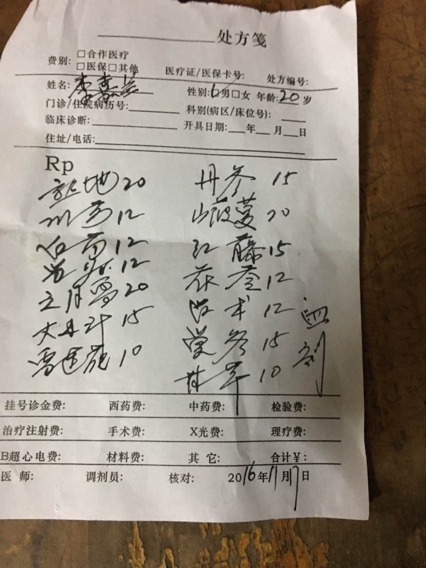 处方笺
费别: □合作医疗
□医保□其他 医疗证/医保卡号: 处方编号:
姓名: 性别:□男□女 年龄:20岁
门诊/住院病历号: 科别(病区/床位号):
临床诊断: 开具日期: 年 月 日
住址/电话:
Rp
熟地20 丹参 15
川芎12 山菠萝 20
白芍12 红藤15
12 茯苓12
20 白术 12
15 党参 15
10 甘草 10
剂
挂号诊金费: 西药费: 中药费: 检验费:
治疗注射费: 手术费: X光费: 理疗费:
B超心电费: 材料费: 其它: 合计¥:
医师: 调剂员: 核对: 2016年11月17日